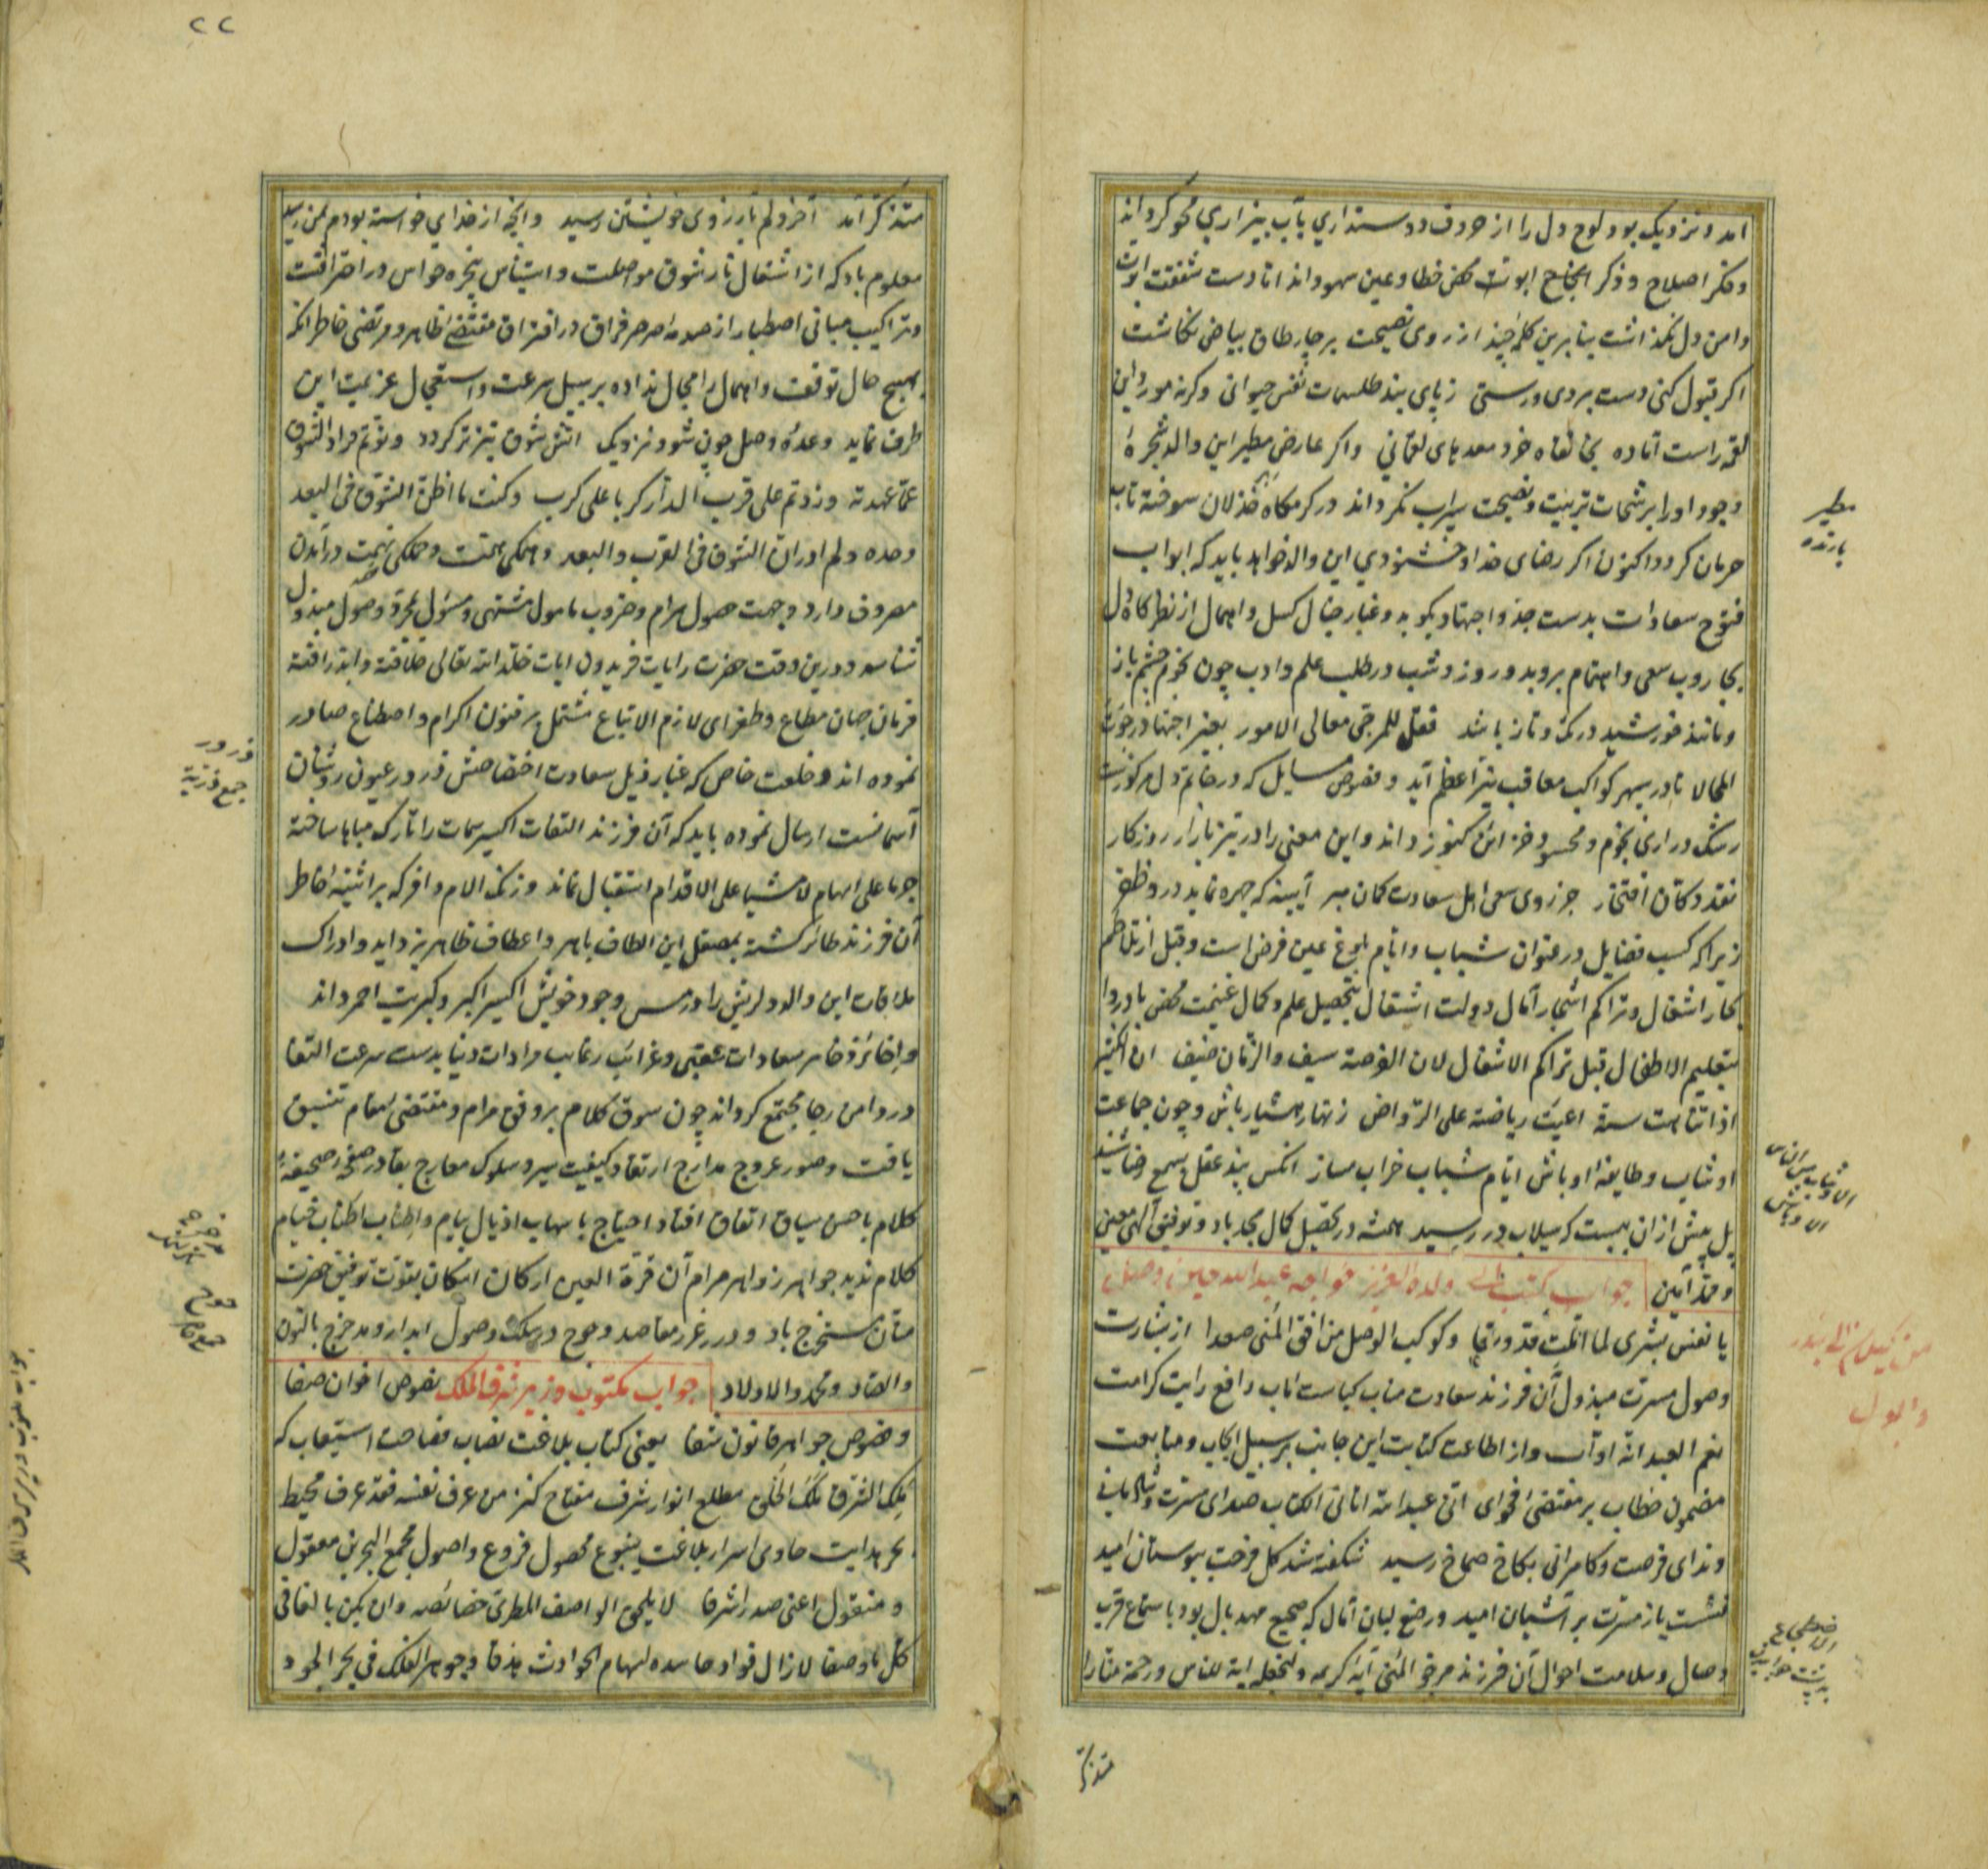 امد و نزدیک بود لوح دل را از حروف دوستداری بآب بیزاری محو کرداند
وفکر اصلاح و ذکر انجاح ابوت محض خطا و عین سهو داند اما دست شفقت ابوت
دامن دل نکذاشت بنابرین کلمه چند از روی نصیحت بر چار طاق بیاض نکاشت
اکر قبول کنی دست بردی و رستی ز پای بند طلسمات نفس حیوانی وکرنه مور و این
لقمه راست آماده بخانقاه خرد معدهای لقمانی واکر عارض مطیر این والد شجره
وجود او را برشحات تربیت و نصیحت سیراب نکرداند در کرمکاه خذلان سوخته تاب
حرمان کردد اکنون اکر رضای خدا و خشنودی این والد خواهد باید که ابواب
فتوح سعادات بدست جد و اجتهاد بکوبد و غبار خیال کسل و اهمال از نظرکاه دل
بجاروب سعی و اهتمام بروبد و روز و شب در طلب علم و ادب چون نجوم چشم باز
و مانند خورشید در تک و تاز باشد فقل للمرجی معالی الامور بغیر اجتهاد رجوت
المحالا تا در سپهر کواکب معاقب نیر اعظم آید و فصوص مسایل که در خاتم دل مرکوزست
رشک دراری نجوم و محسود خزائن کنوز داند و این معنی را در تیز بازار روزکار
نقد دکان افتخار جز روی سعی اهل سعادت کمان مبر آیینه که چهره نماید درو ظفر
زیرا که کسب فضایل در عنوان شباب و ایام بلوغ عین فرض است و قبل از تلاطم
بحار اشغال و تراکم اشجار آمال دولت اشتغال بتحصیل علم و کمال غنیمت محض بادروا
بتعلیم الاطفال قبل تراکم الاشغال لان الفرصة سیف والزمان ضیف ان
اذا تناهت سنه اعیت ریاضته علی الرواض زنهار هشیار باش و چون جماعت
اوشاب و طایفه اوباش ایام شباب خراب مساز انکس پند عقل بسمع رضا شنید
پل پیش ازان ببست که سیلاب در رسید همیشه در تحصیل کمال مجد باد و توفیق آلهی معین
و ممد آمین جواب کتب الی ولده العزیز خواجه عبد الله
یا نفس بشری لما املت قد وردا وکوکب الوصل من افق المنی صعدا از بشارت
وصول مسرت مبذول آن فرزند سعادت مناب کیاست اماب رافع رایت کرامت
نعم العبد انه اواب و از اطاعت کتابت این جانب بر سبیل ایجاب و متابعت
مضمون خطاب بر مقتضی فحوای انی عبد الله اتانی الکتاب صدای مسرت و شادمانی
و ندای فرصت و کامرانی بکاخ صماخ رسید شکفته شد کل فرحت ببوستان امید
نشست باز مسرت بر آشیان امید و رضع لبان آمال که ضجیع مهد بال بود باستماع قرب
وصال و سلامت احوال آن فرزند مرجو المنی آیه کریمه ولنجعله آیة للناس ورحمة منا را
مطیر
بارنده
الاوشاب من الناس
الاوباش
من کیلان الی بندر
دابول
الاضطجاع
متذکر
۲۲
متذکر آمد آخر دلم بارزوی خویشتن رسید وانچه از خدای خواسته بودم بمن رسید
معلوم باد که از اشتعال نار شوق مواصلت و استیناس پنجره حواس در احتراقست
و تراکیب مبانی اصطبار از صدمه صرصر فراق در افتراق مقتضی ظاهر و مرتضی خاطر انکه
بهیچ حال توقف و اهمال را مجال نداده بر سبیل سرعت و استعجال عزیمت این
طرف نماید وعده وصل چون شود نزدیک اتش شوق تیزتر کردد و یوم مزاد الشوق
عما عهدته وزدتم علی قرب الدار کربا علی کرب وکنت اظن الشوق فی البعد
وحده ولم ادر ان الشوق فی القرب والبعد وهمکی همت و جملکی نهمت در آمدن
مصروف دارد و جهت حصول مرام و ضروب مامول مشتهی و مسؤل بجز وصول مبذول
نشناسد و درین وقت حضرت رایات فریدون ایات خلد الله تعالی خلافته و ابد رافته
فرمان جهان مطاع و طغرای لازم الاتباع مشتمل بر فنون اکرام و اصطناع صادر
نموده اند و خلعت خاص که غبار ذیل سعادت اختصاصش ذرور عیون روشنان
آسمانست ارسال نموده باید که آن فرزند التفات اکسیر سمات را تارک مباهات ساخته
جریا علی الهام لا مشیا علی الاقدام استقبال نماید و زنک الام وافر که بر آئینه خاطر
آن فرزند طاری کشته بمصقل این الطاف باهر و اعطاف ظاهر بزداید و ادراک
ملاقات این والد دلریش را در مس وجود خویش اکسیر اکبر و کبریت احمر داند
وذخائر سعادات عقبی و غرائب رغایب مرادات دنیا بدست سرعت التقا
در دامن رجا مجتمع کرداند چون سوق کلام بر وفق مرام و مقتضی مقام تنسیق
یافت و صور عروج مدارج ارتقا و کیفیت سیر و سلوک معارج بقا در صفح صحیفه
کلام باحسن سیاق اتفاق افتاد احتیاج باسهاب اذیال پیام و اطناب اطناب خیام
کلام ندید جواهر زواهر مرام آن قرة العین از کان امکان بقوت توفیق حضرت
منان مستخرج باد و درر غرر مقاصد و حوج در سلک وصول ابدا و مدخرج بالنون
والصاد و محمد والاولاد جواب مکتوب وزیر شرف الملک نصوص اخوان صفا
و فصوص جواهر قانون شفا یعنی کتاب بلاغت نصاب فصاحت استیعاب که
ملک الشرق ملک الخلق مطلع انوار شرف مفتاح کنز من عرف نفسه فقد عرف محیط
بحر هدایت حاوی اسرار بلاغت ینبوع محصول فروع و اصول مجمع البحرین معقول
و منقول اعنی صدرا شرفا لا یلحق الواصف المطری خصائصه وان یکن بالغا فی
کل ما وصفا لازال فواد حاسده لسهام الحوادث هدفا وجوهر الفلک فی بحر الجود
ذرور
جمع
جواب مکتوب وزیر شرف الملک